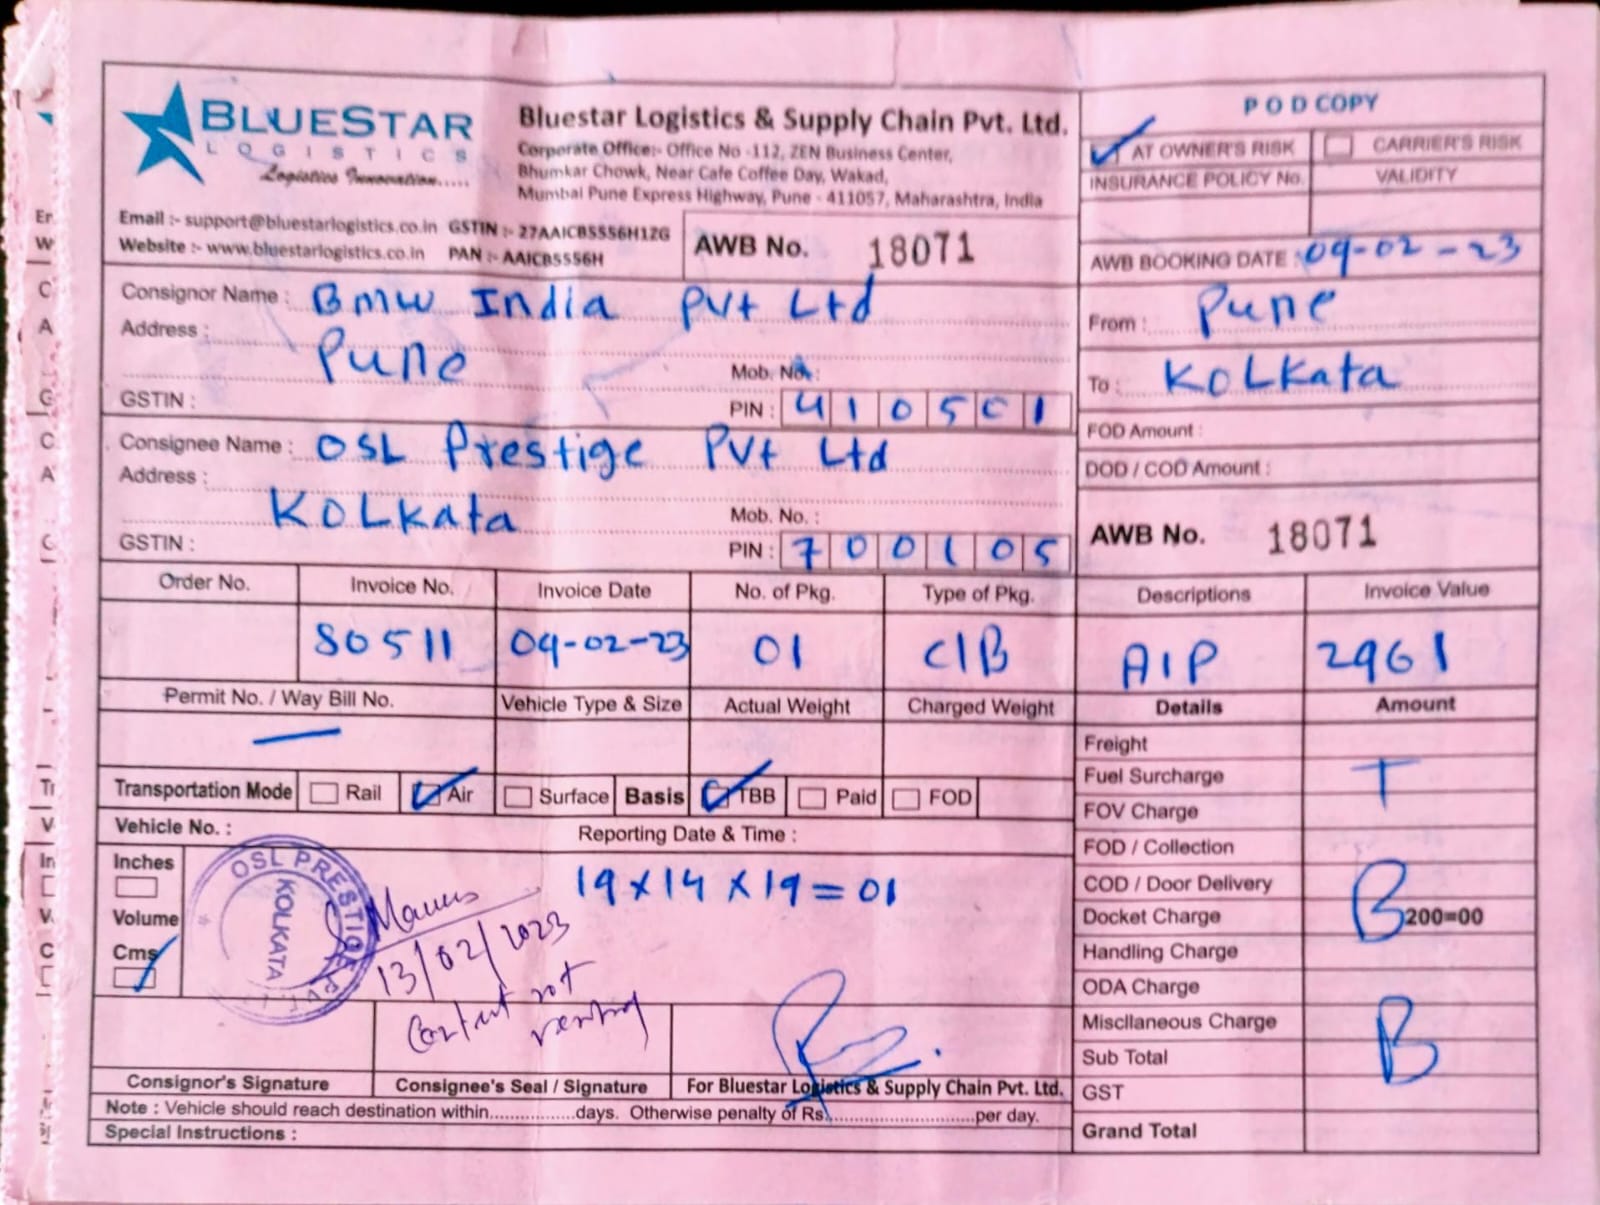 BLUESTAR
LOGISTICS
Logistics Innovation.....
Bluestar Logistics & Supply Chain Pvt. Ltd.
Corporate Office:- Office No -112, ZEN Business Center,
Bhumkar Chowk, Near Cafe Coffee Day, Wakad,
Mumbai Pune Express Highway, Pune - 411057, Maharashtra, India
Email :- support@bluestarlogistics.co.in GSTIN :- 27AAICB5556H1ZG
Website :- www.bluestarlogistics.co.in PAN :- AAICB5556H
AWB No. 18071
POD COPY
AT OWNER'S RISK CARRIER'S RISK
INSURANCE POLICY No. VALIDITY
AWB BOOKING DATE : 09-02-23
From : Pune
To : KOLKata
FOD Amount :
DOD / COD Amount :
AWB No. 18071
Consignor Name : BMW India Pvt Ltd
Address :
Pune
Mob. No. :
GSTIN : PIN : 410501
Consignee Name : OSL Prestige Pvt Ltd
Address :
KOLkata
Mob. No. :
GSTIN : PIN : 700105
Order No. Invoice No. Invoice Date No. of Pkg. Type of Pkg. Descriptions Invoice Value
80511 09-02-23 01 C/B AIP 2961
Permit No. / Way Bill No. Vehicle Type & Size Actual Weight Charged Weight Details Amount
Transportation Mode Rail Air Surface Basis TBB Paid FOD
Vehicle No. : Reporting Date & Time :
Inches
Volume
Cms
19x14x19=01
OSL PRESTIGE PVT. LTD.
KOLKATA
13/02/2023
not
Freight
Fuel Surcharge T
FOV Charge
FOD / Collection
COD / Door Delivery
Docket Charge B 200=00
Handling Charge
ODA Charge
Miscllaneous Charge
Sub Total B
GST
Grand Total
Consignor's Signature Consignee's Seal / Signature For Bluestar Logistics & Supply Chain Pvt. Ltd.
Note : Vehicle should reach destination within.................days. Otherwise penalty of Rs..............................per day.
Special Instructions :